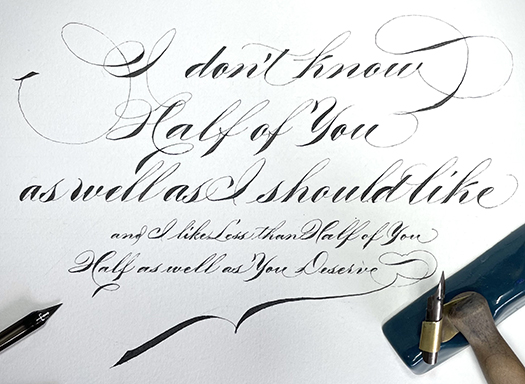 I don't know
Half of You
as well as I should like
and I like Less than Half of You
Half as well as You Deserve